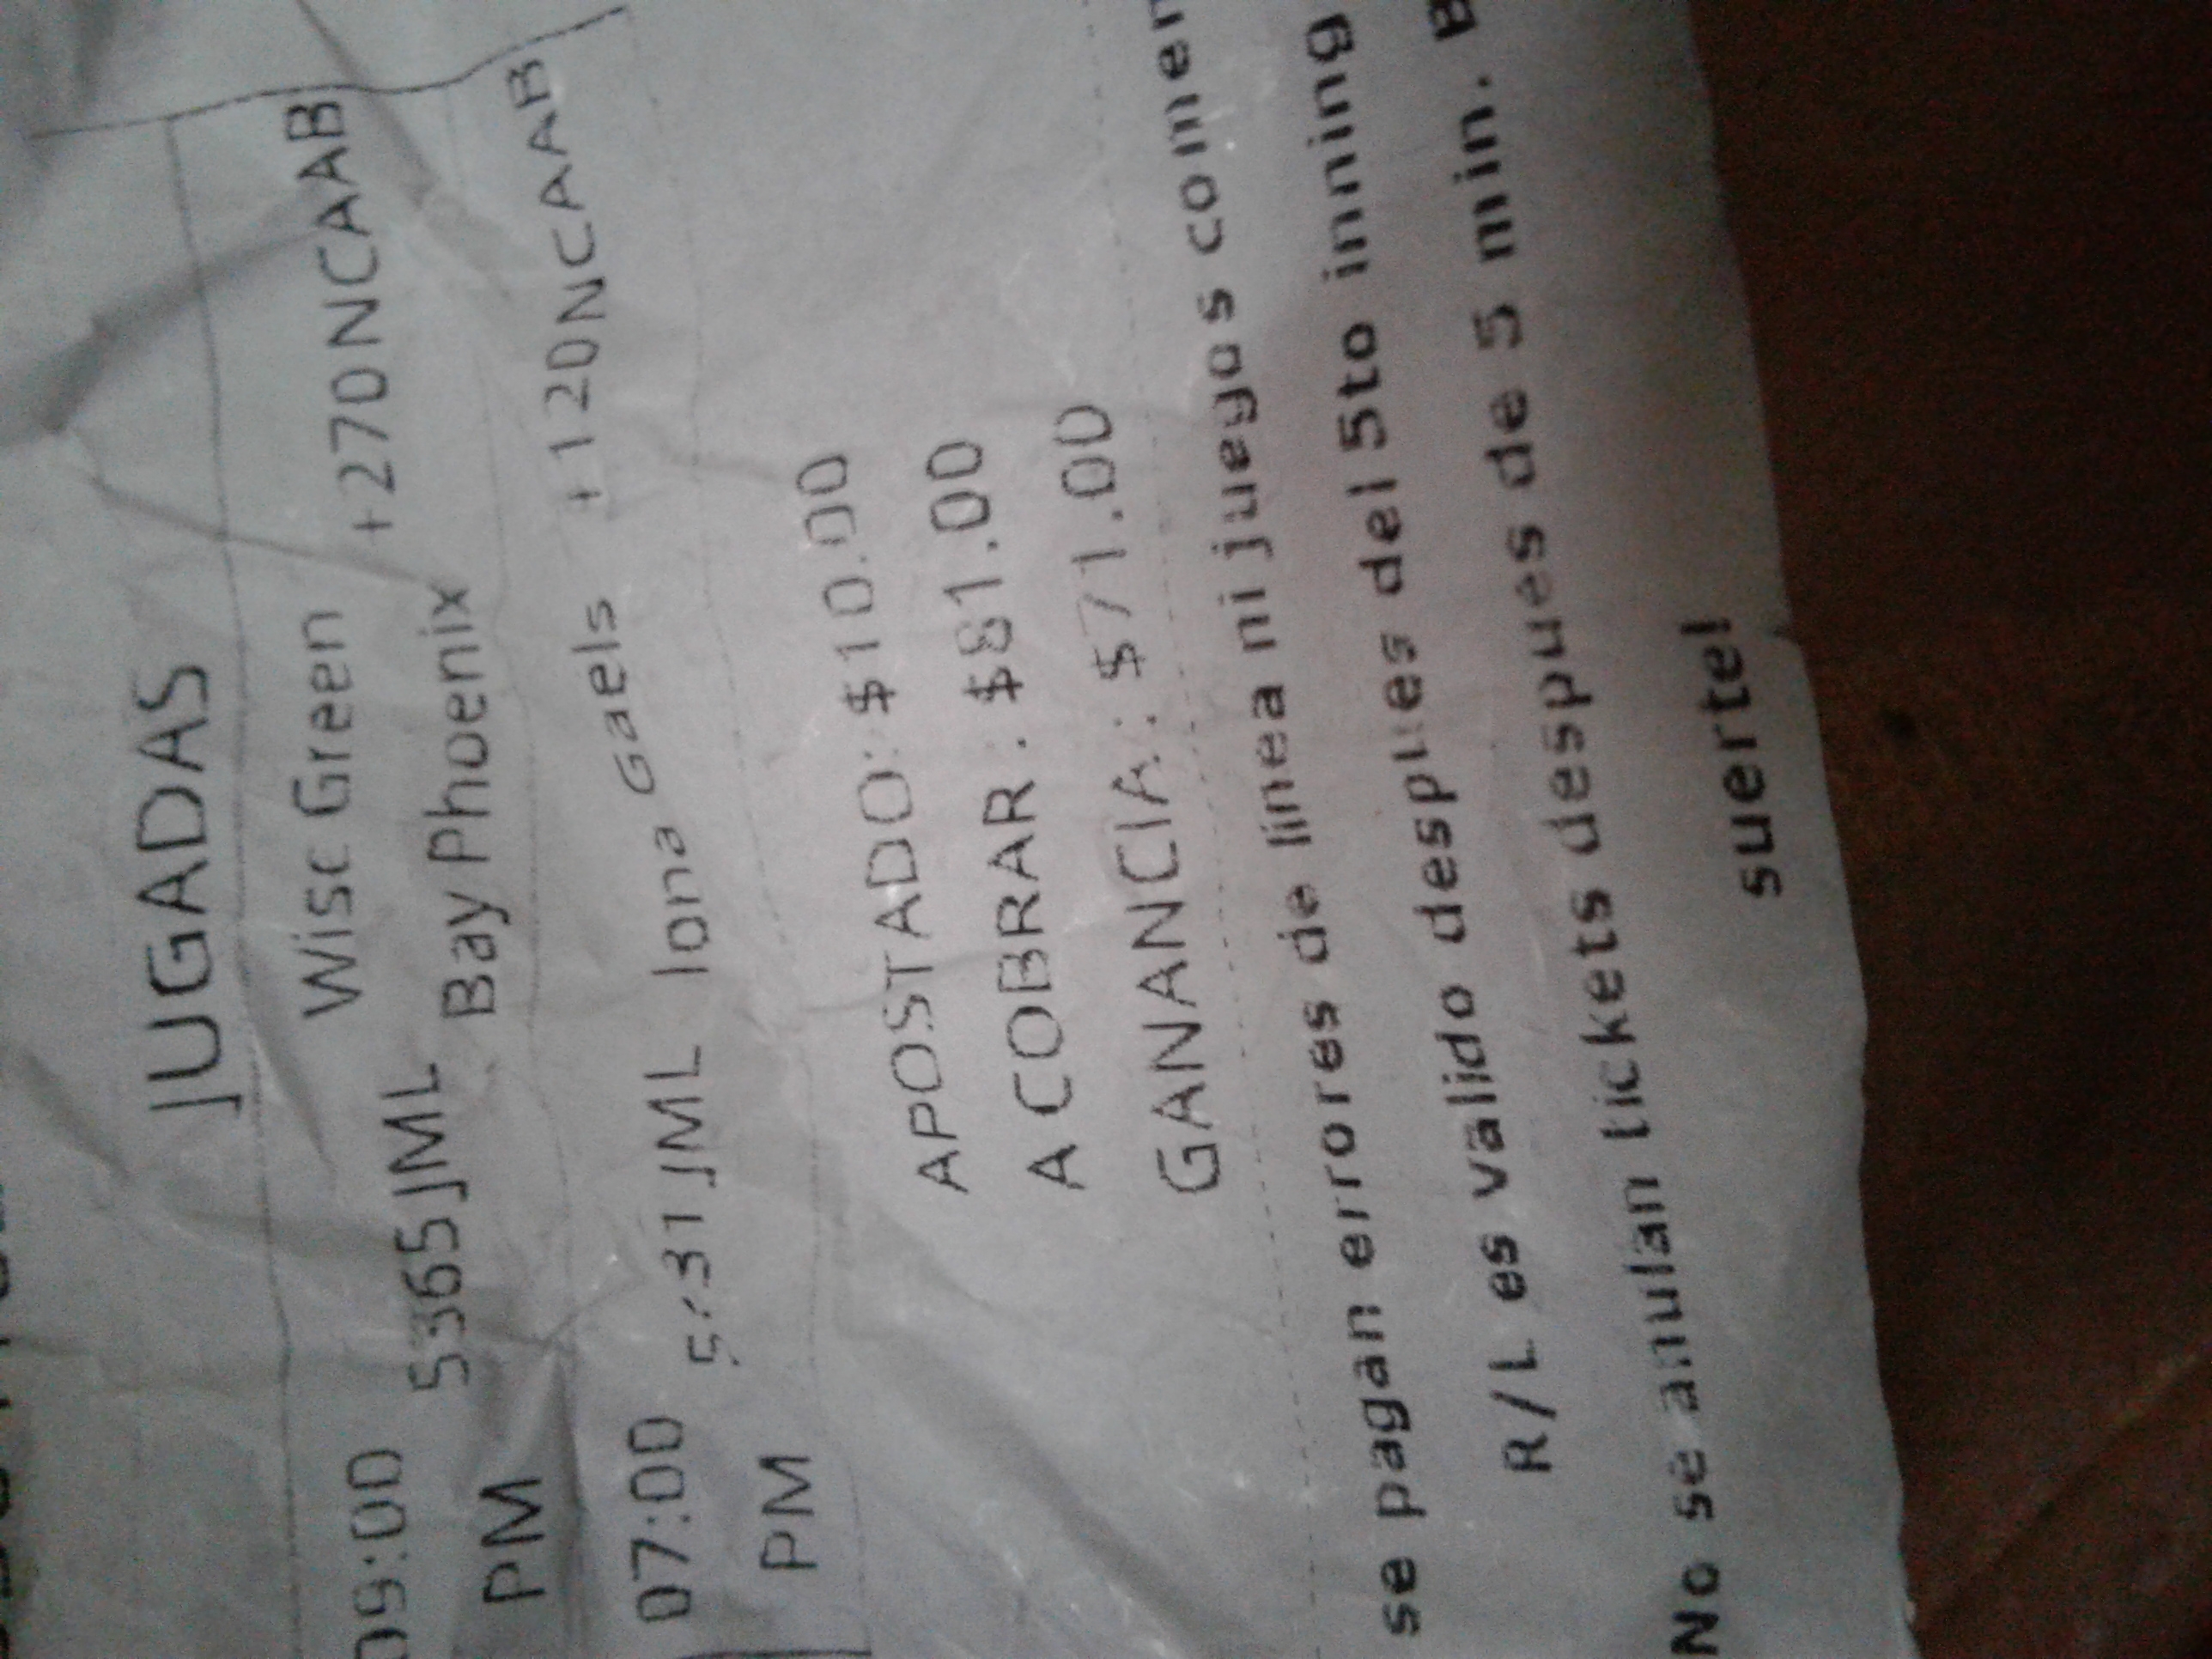 JUGADAS
09:00 5365 JML Wisc Green +270 NCAAB
PM Bay Phoenix
07:00 JML Iona Gaels +120 NCAAB
PM
APOSTADO: $10.00
A COBRAR: $81.00
GANANCIA: $71.00
se pagan errores de linea ni juegos comen
R/L es valido despues del 5to inning
No se anulan tickets despues de 5 min.
suerte!